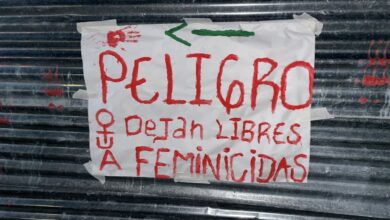 PELIGRO
DeJaN LIBRES
FEMINICIDAS